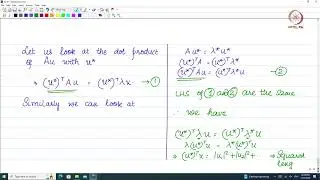 Let us look at the dot product
of Au with u*
⇒ (u*)ᵀAu = (u*)ᵀλu → ①
Similarly we can look at
Au* = λ*u*
(u*)ᵀA = (u*)ᵀλ*
(u*)ᵀAu = (u*)ᵀλ*u → ②
LHS of ① and ② are the same
∴ we have
(u*)ᵀλu = (u*)ᵀλ*u
λ(u*)ᵀu = λ*(u*)ᵀu
⇒ (u*)ᵀu = |u₁|² + |u₂|² + → Squared
leng